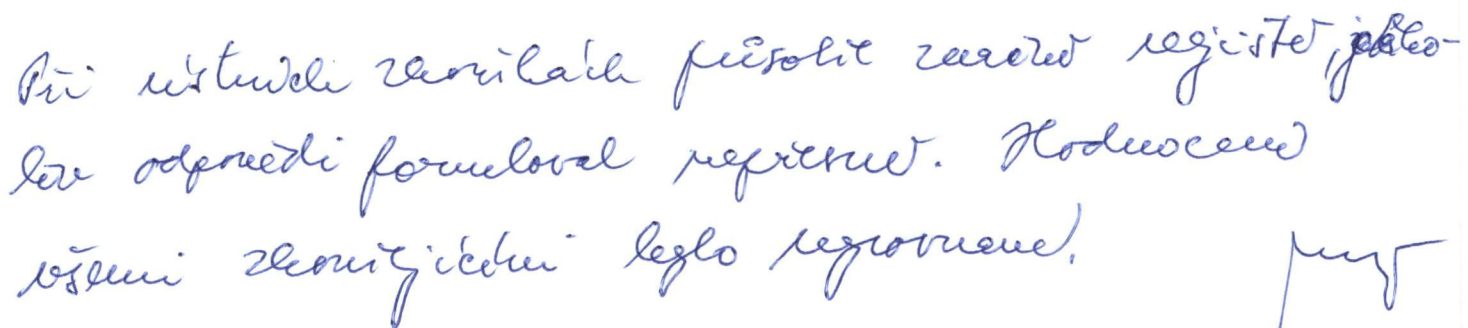 Při ústních zkouškách působil značně nejistě,
odpovědi formuloval nepřesně. Hodnocení
všemi zkoušejícími bylo vyrovnané.